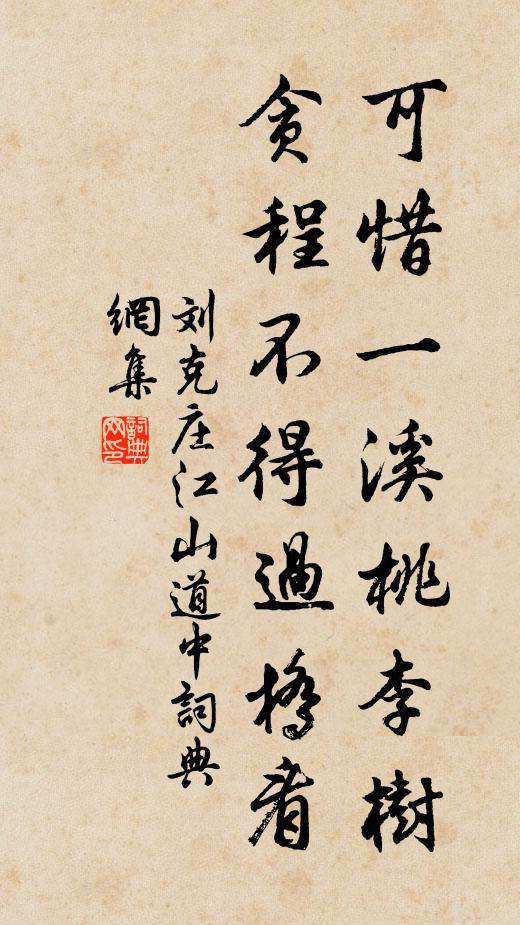 可惜一溪桃李樹
貪程不得過橋看
刘克庄江山道中詞典
網集
詞典
网印